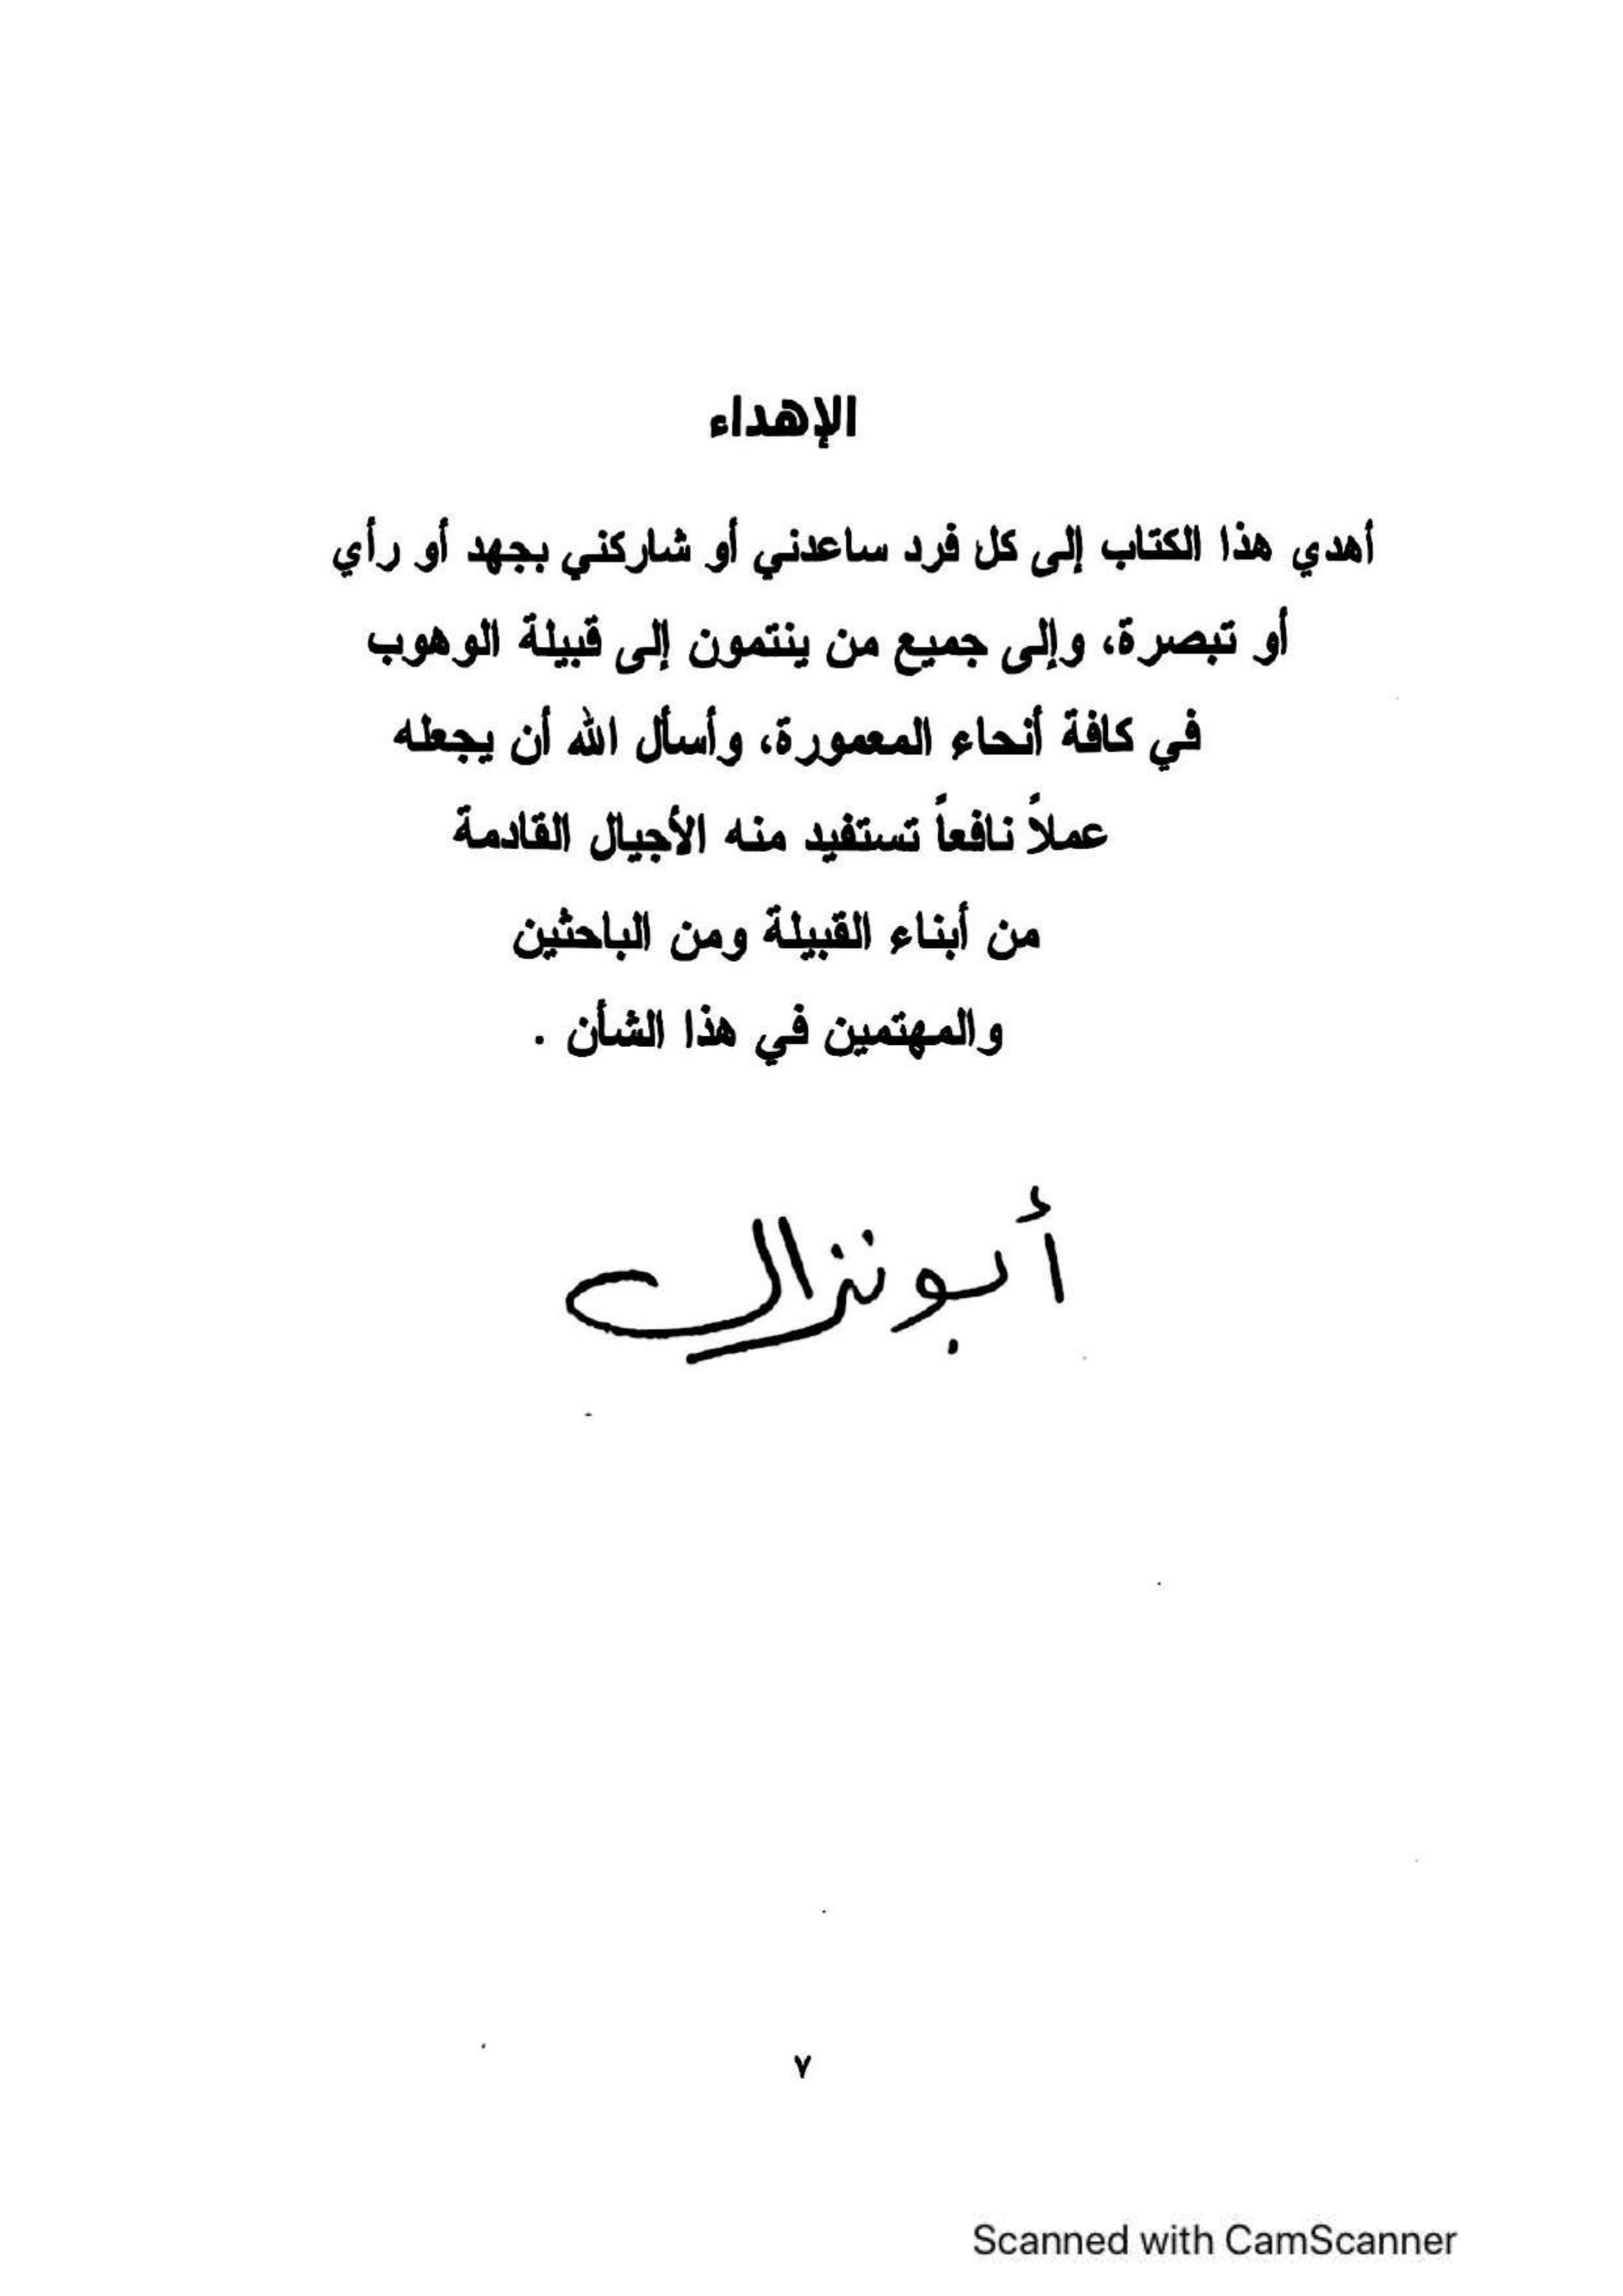 الإهداء
أهدي هذا الكتاب إلى كل فرد ساعدني أو شاركني بجهد أو رأي
أو تبصرة، وإلى جميع من ينتمون إلى قبيلة الوهوب
في كافة أنحاء المعمورة، وأسأل الله أن يجعله
عملاً نافعاً تستفيد منه الأجيال القادمة
من أبناء القبيلة ومن الباحثين
والمهتمين في هذا الشأن .
أبو نزال
٧
Scanned with CamScanner